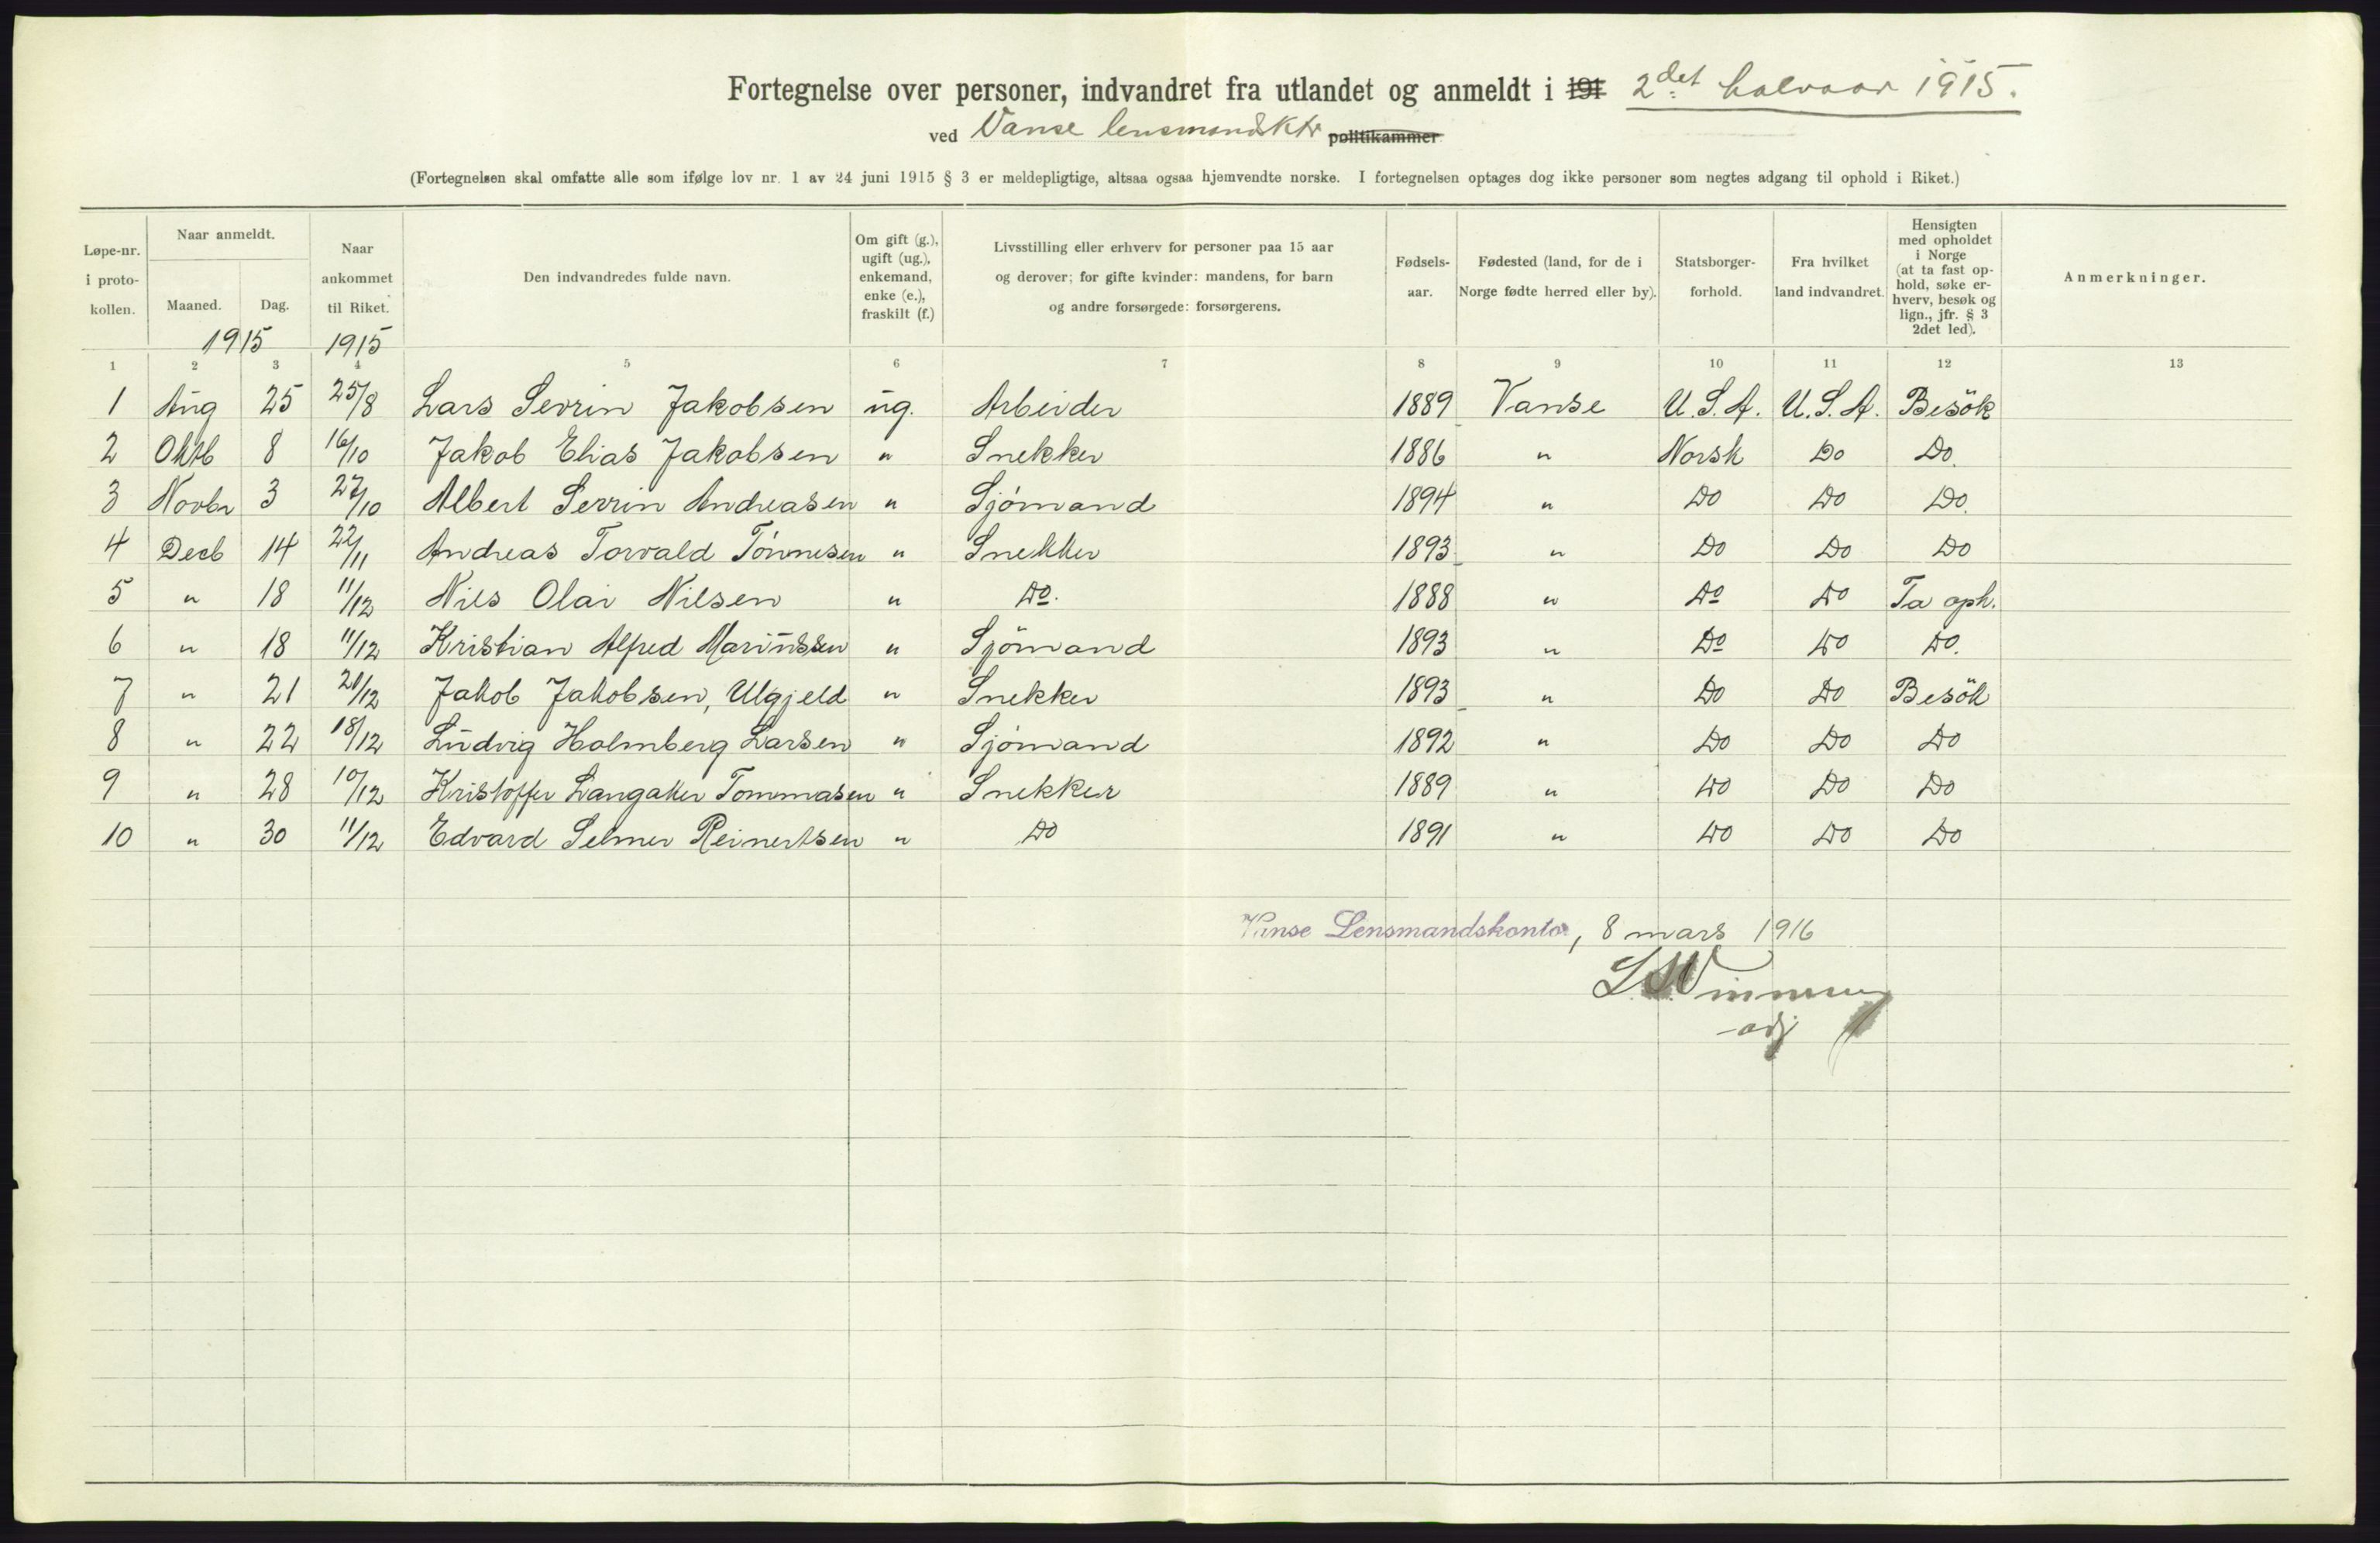 Fortegnelse over personer, indvandret fra utlandet og anmeldt i 191 2det halvaar 1915.
ved Vanse lensmandsktr politikammer
(Fortegnelsen skal omfatte alle som ifølge lov nr. 1 av 24 juni 1915 § 3 er meldepligtige, altsaa ogsaa hjemvendte norske. I fortegnelsen optages dog ikke personer som negtes adgang til ophold i Riket.)
Løpe-nr. i proto-kollen.
Naar anmeldt.
Maaned. Dag.
1915
Naar ankommet til Riket.
1915
Den indvandredes fulde navn.
Om gift (g.), ugift (ug.), enkemand, enke (e.), fraskilt (f.)
Livsstilling eller erhverv for personer paa 15 aar og derover; for gifte kvinder: mandens, for barn og andre forsørgede: forsørgerens.
Fødsels-aar.
Fødested (land, for de i Norge fødte herred eller by).
Statsborger-forhold.
Fra hvilket land indvandret.
Hensigten med opholdet i Norge (at ta fast op-hold, søke er-hverv, besøk og lign., jfr. § 3 2det led).
Anmerkninger.
1 2 3 4 5 6 7 8 9 10 11 12 13
1 Aug 25 25/8 Lars Severin Jakobsen ug. Arbeider 1889 Vanse U.S.A. U.S.A. Besök
2 Oktb 8 16/10 Jakob Elias Jakobsen " Snekker 1886 " Norsk Do Do.
3 Novbr 3 27/10 Albert Serrin Andreasen " Sjömand 1894 " Do Do Do.
4 Decb 14 22/11 Andreas Torvald Tönnesen " Snekker 1893 " Do Do Do
5 " 18 11/12 Nils Olai Nilsen " Do. 1888 " Do Do Ta oph.
6 " 18 11/12 Kristian Alfred Mariussen " Sjömand 1893 " Do Do Do.
7 " 21 21/12 Jakob Jakobsen, Ulgjeld " Snekker 1893 " Do Do Besök
8 " 22 18/12 Ludvig Holmberg Larsen " Sjömand 1892 " Do Do Do
9 " 28 10/12 Kristoffer Langaker Tommasen " Snekker 1889 " Do Do Do
10 " 30 11/12 Edvard Selmer Reinertsen " Do 1891 " Do Do Do
Vanse Lensmandskontor, 8 mars 1916